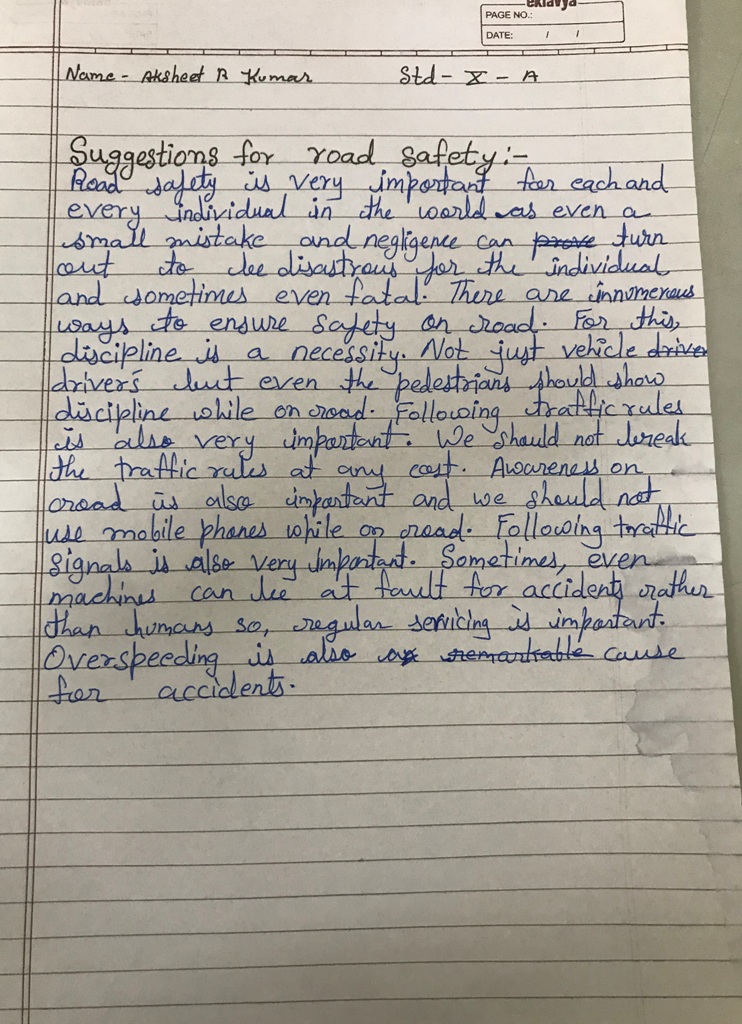 eklavya
PAGE NO.:
DATE: / /
Name - Aksheet R Kumar Std - X - A
Suggestions for road safety:-
Road safety is very important for each and
every individual in the world as even a
small mistake and negligence can prove turn
out to be disastrous for the individual
and sometimes even fatal. There are innumerous
ways to ensure safety on road. For this,
discipline is a necessity. Not just vehicle driver
drivers but even the pedestrians should show
discipline while on road. Following traffic rules
is also very important. We should not break
the traffic rules at any cost. Awareness on
road is also important and we should not
use mobile phones while on road. Following traffic
signals is also very important. Sometimes, even
machines can be at fault for accidents rather
than humans so, regular servicing is important.
Overspeeding is also a remarkable cause
for accidents.